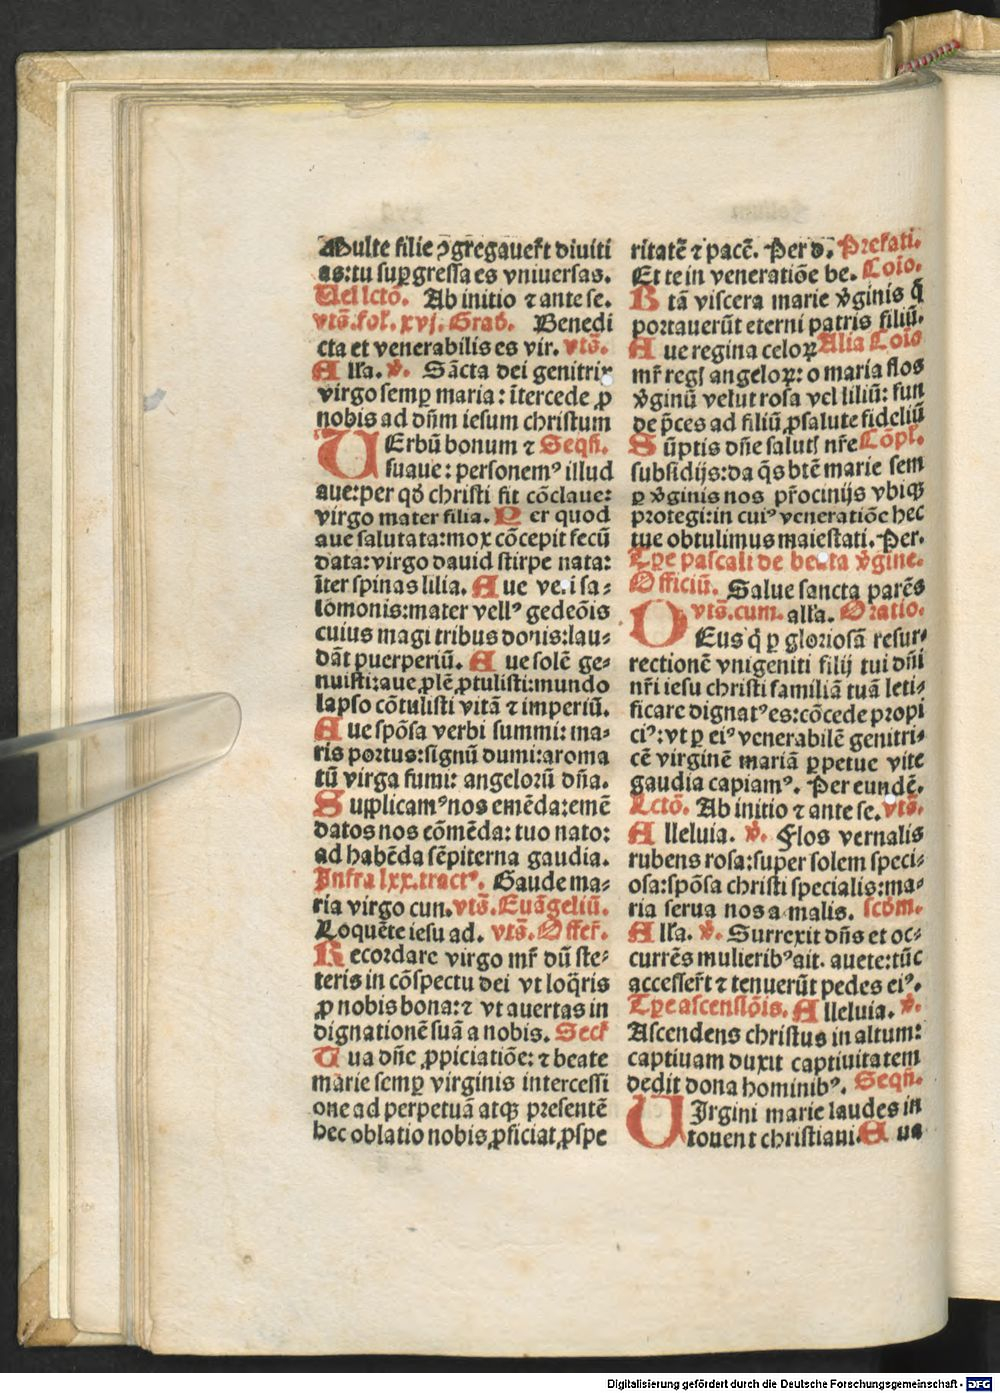 Multe filie ↄgregauer̄t diuiti
as:tu suꝑgressa es vniuersas.
Uel lctō. Ab initio ⁊ ante se.
vts̄.fol̄.xvj. Grad. Benedi
cta et venerabilis es vir. vts̄.
All'a. v̄. Sācta dei genitrix
virgo semꝑ maria: ītercede ꝓ
nobis ad dn̄m iesum christum
UErbū bonum ⁊ Seqn̄.
suaue: personemꝰ illud
aue:per qd̄ christi fit cōclaue:
virgo mater filia. Per quod
aue salutata:mox cōcepit fecū
data:virgo dauid stirpe nata:
īter spinas lilia. Aue veri sa-
lomonis:mater vellꝰ gedeōis
cuius magi tribus donis:lau-
dāt puerperiū. Aue solē ge-
nuisti:aue ꝓlē ꝓtulisti:mundo
lapso cōtulisti vitā ⁊ imperiū.
Aue spōsa verbi summi: ma-
ris portus:signū dumi:aroma
tū virga fumi: angelorū dn̄a.
Supplicamꝰ nos emēda:emē
datos nos cōmēda: tuo nato:
ad habēda sēpiterna gaudia.
Infra lxx.tractꝰ. Gaude ma-
ria virgo cun. vts̄. Euāgeliū.
Loquēte iesu ad. vts̄. Offer̄.
Recordare virgo mr̄ dū ste-
teris in cōspectu dei vt loq̄ris
ꝓ nobis bona:⁊ vt auertas in
dignationē suā a nobis. Secr̄
Tua dn̄e ꝓpiciatiōe: ⁊ beate
marie semꝑ virginis intercessi
one ad perpetuā atqꝫ presentē
hec oblatio nobis ꝓficiat ꝓspe
ritatē ⁊ pacē. Per d. Prefati.
Et te in veneratiōe be. Cōio.
Btā viscera marie v̄ginis q̄
portauerūt eterni patris filiū.
Aue regina celoꝝ Alia Cōio
mr̄ regꝭ angeloꝝ: o maria flos
v̄ginū velut rosa vel liliū: fun
de p̄ces ad filiū ꝓ salute fideliū
Sūptis dn̄e salutꝭ nr̄e Cōpl̄.
subsidijs:da q̄s btē marie sem
ꝑ v̄ginis nos pr̄ocinijs vbiqꝫ
protegi:in cuiꝰ veneratiōe hec
tue obtulimus maiestati. Per.
Tꝑe pascali de beata v̄gine.
Officiū. Salue sancta parēs
vts̄.cum. all'a. Oratio.
OEus q̄ ꝑ gloriosā resur-
rectionē vnigeniti filij tui dn̄i
nr̄i iesu christi familiā tuā leti-
ficare dignatꝰ es:cōcede propi
ciꝰ:vt ꝑ eiꝰ venerabilē genitri-
cē virginē mariā ꝑpetue vite
gaudia capiamꝰ. Per eundē.
Lctō. Ab initio ⁊ ante se. vts̄.
Alleluia. v̄. Flos vernalis
rubens rosa:super solem speci-
osa:spōsa christi specialis:ma-
ria serua nos a malis. scdm̄.
All'a. v̄. Surrexit dn̄s et oc-
currēs mulieribꝰ ait. auete:tūc
accesser̄t ⁊ tenuerūt pedes eiꝰ.
Tꝑe ascensiōis. Alleluia. v̄.
Ascendens christus in altum:
captiuam duxit captiuitatem
dedit dona hominibꝰ. Seqn̄.
UIrgini marie laudes in
tonent christiani. Eua
Digitalisierung gefördert durch die Deutsche Forschungsgemeinschaft - DFG